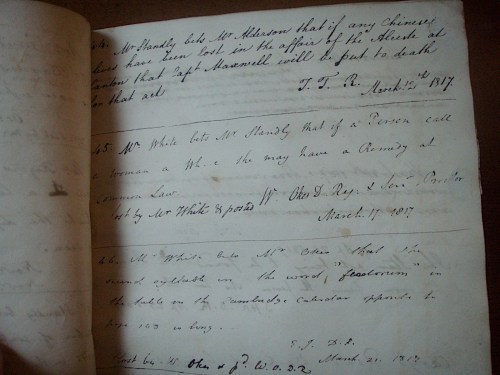 Mr Standly bets Mr Alderson that if any Chinese
have been lost in the affair of the Alceste at
Canton that Capt Maxwell will be put to death
for that act
T. T. R. March 12th 1817.
45. Mr White bets Mr Standly that if a Person call
a woman a Wh--e she may have a Remedy at
Common Law.
Lost by Mr White & posted Wm Okes D.
March 17 1817
46. Mr White bets Mr Okes that the
second syllable in the word, " " in
the table in the Cambridge calendar opposite to
page 123 is long.
March 21. 1817
Lost by W. Okes & pd. W. O. D. R.